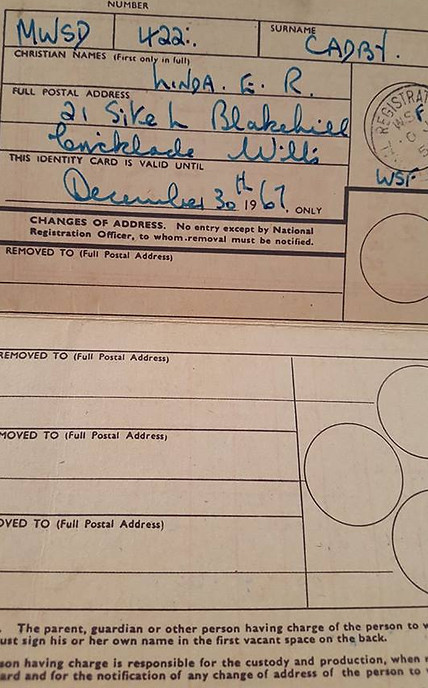 NUMBER
MWSD 422:. SURNAME
CADBY.
CHRISTIAN NAMES (First only in full)
LINDA. E. R.
FULL POSTAL ADDRESS
21 Site L Blakehill
Cricklade Wilts
THIS IDENTITY CARD IS VALID UNTIL
December 30th 1967. ONLY
REGISTRA
WSF
WSF
CHANGES OF ADDRESS. No entry except by National
Registration Officer, to whom removal must be notified.
REMOVED TO (Full Postal Address)
REMOVED TO (Full Postal Address)
MOVED TO (Full Postal Address)
OVED TO (Full Postal Address)
. The parent, guardian or other person having charge of the person to w
ust sign his or her own name in the first vacant space on the back.
son having charge is responsible for the custody and production, when
ard and for the notification of any change of address of the person to